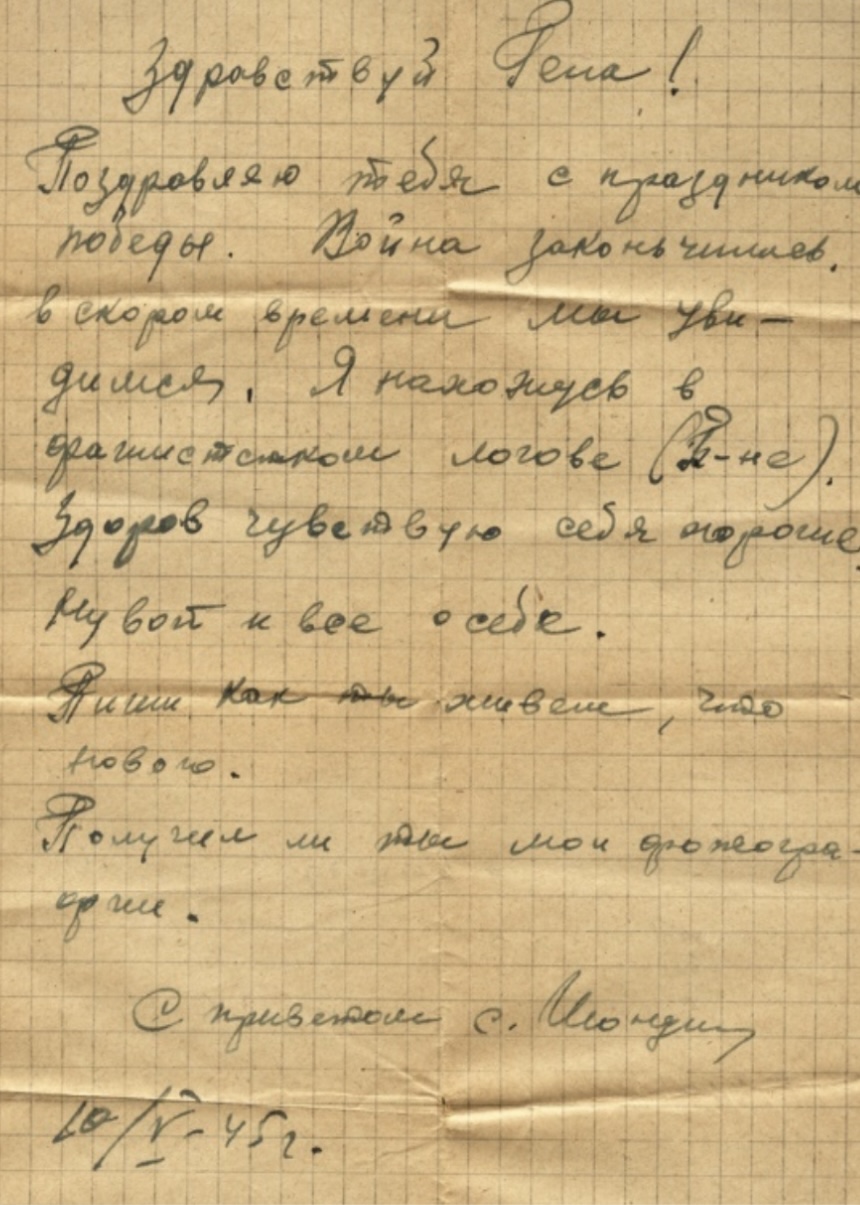 Здравствуй Гена!
Поздравляю тебя с праздником
победы. Война законьчилась.
в скором времени мы уви-
димся. Я нахожусь в
фашистском логове (Б-не).
Здоров чувствую себя хорошо.
Ну вот и все о себе.
Пиши как ты живеш, что
нового.
Получил ли ты мои фотогра-
фии.
С приветом с.
10/V-45г.